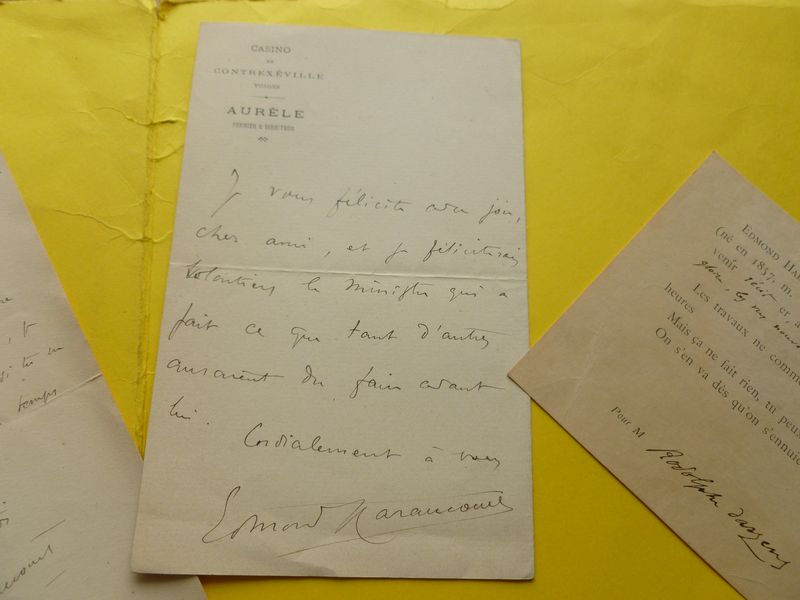 CASINO
DE
CONTREXÉVILLE
VOSGES
AURÈLE
FERMIER & DIRECTEUR
Je vous félicite avec joie,
cher ami, et je féliciterais
volontiers le ministre qui a
fait ce que tant d'autres
auraient du faire avant
lui.
Cordialement à vous
Edmond Haraucourt
temps
EDMOND HA
(né en 1857, m.
venir
heures
Les travaux ne comm
Mais ça ne fait rien, tu peux
On s'en va dès qu'on s'ennuie
Pour M
Rodolphe Darzens